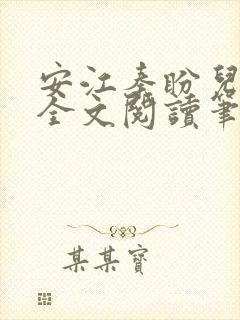 安江秦盼兒
全文閱讀筆
某某寶